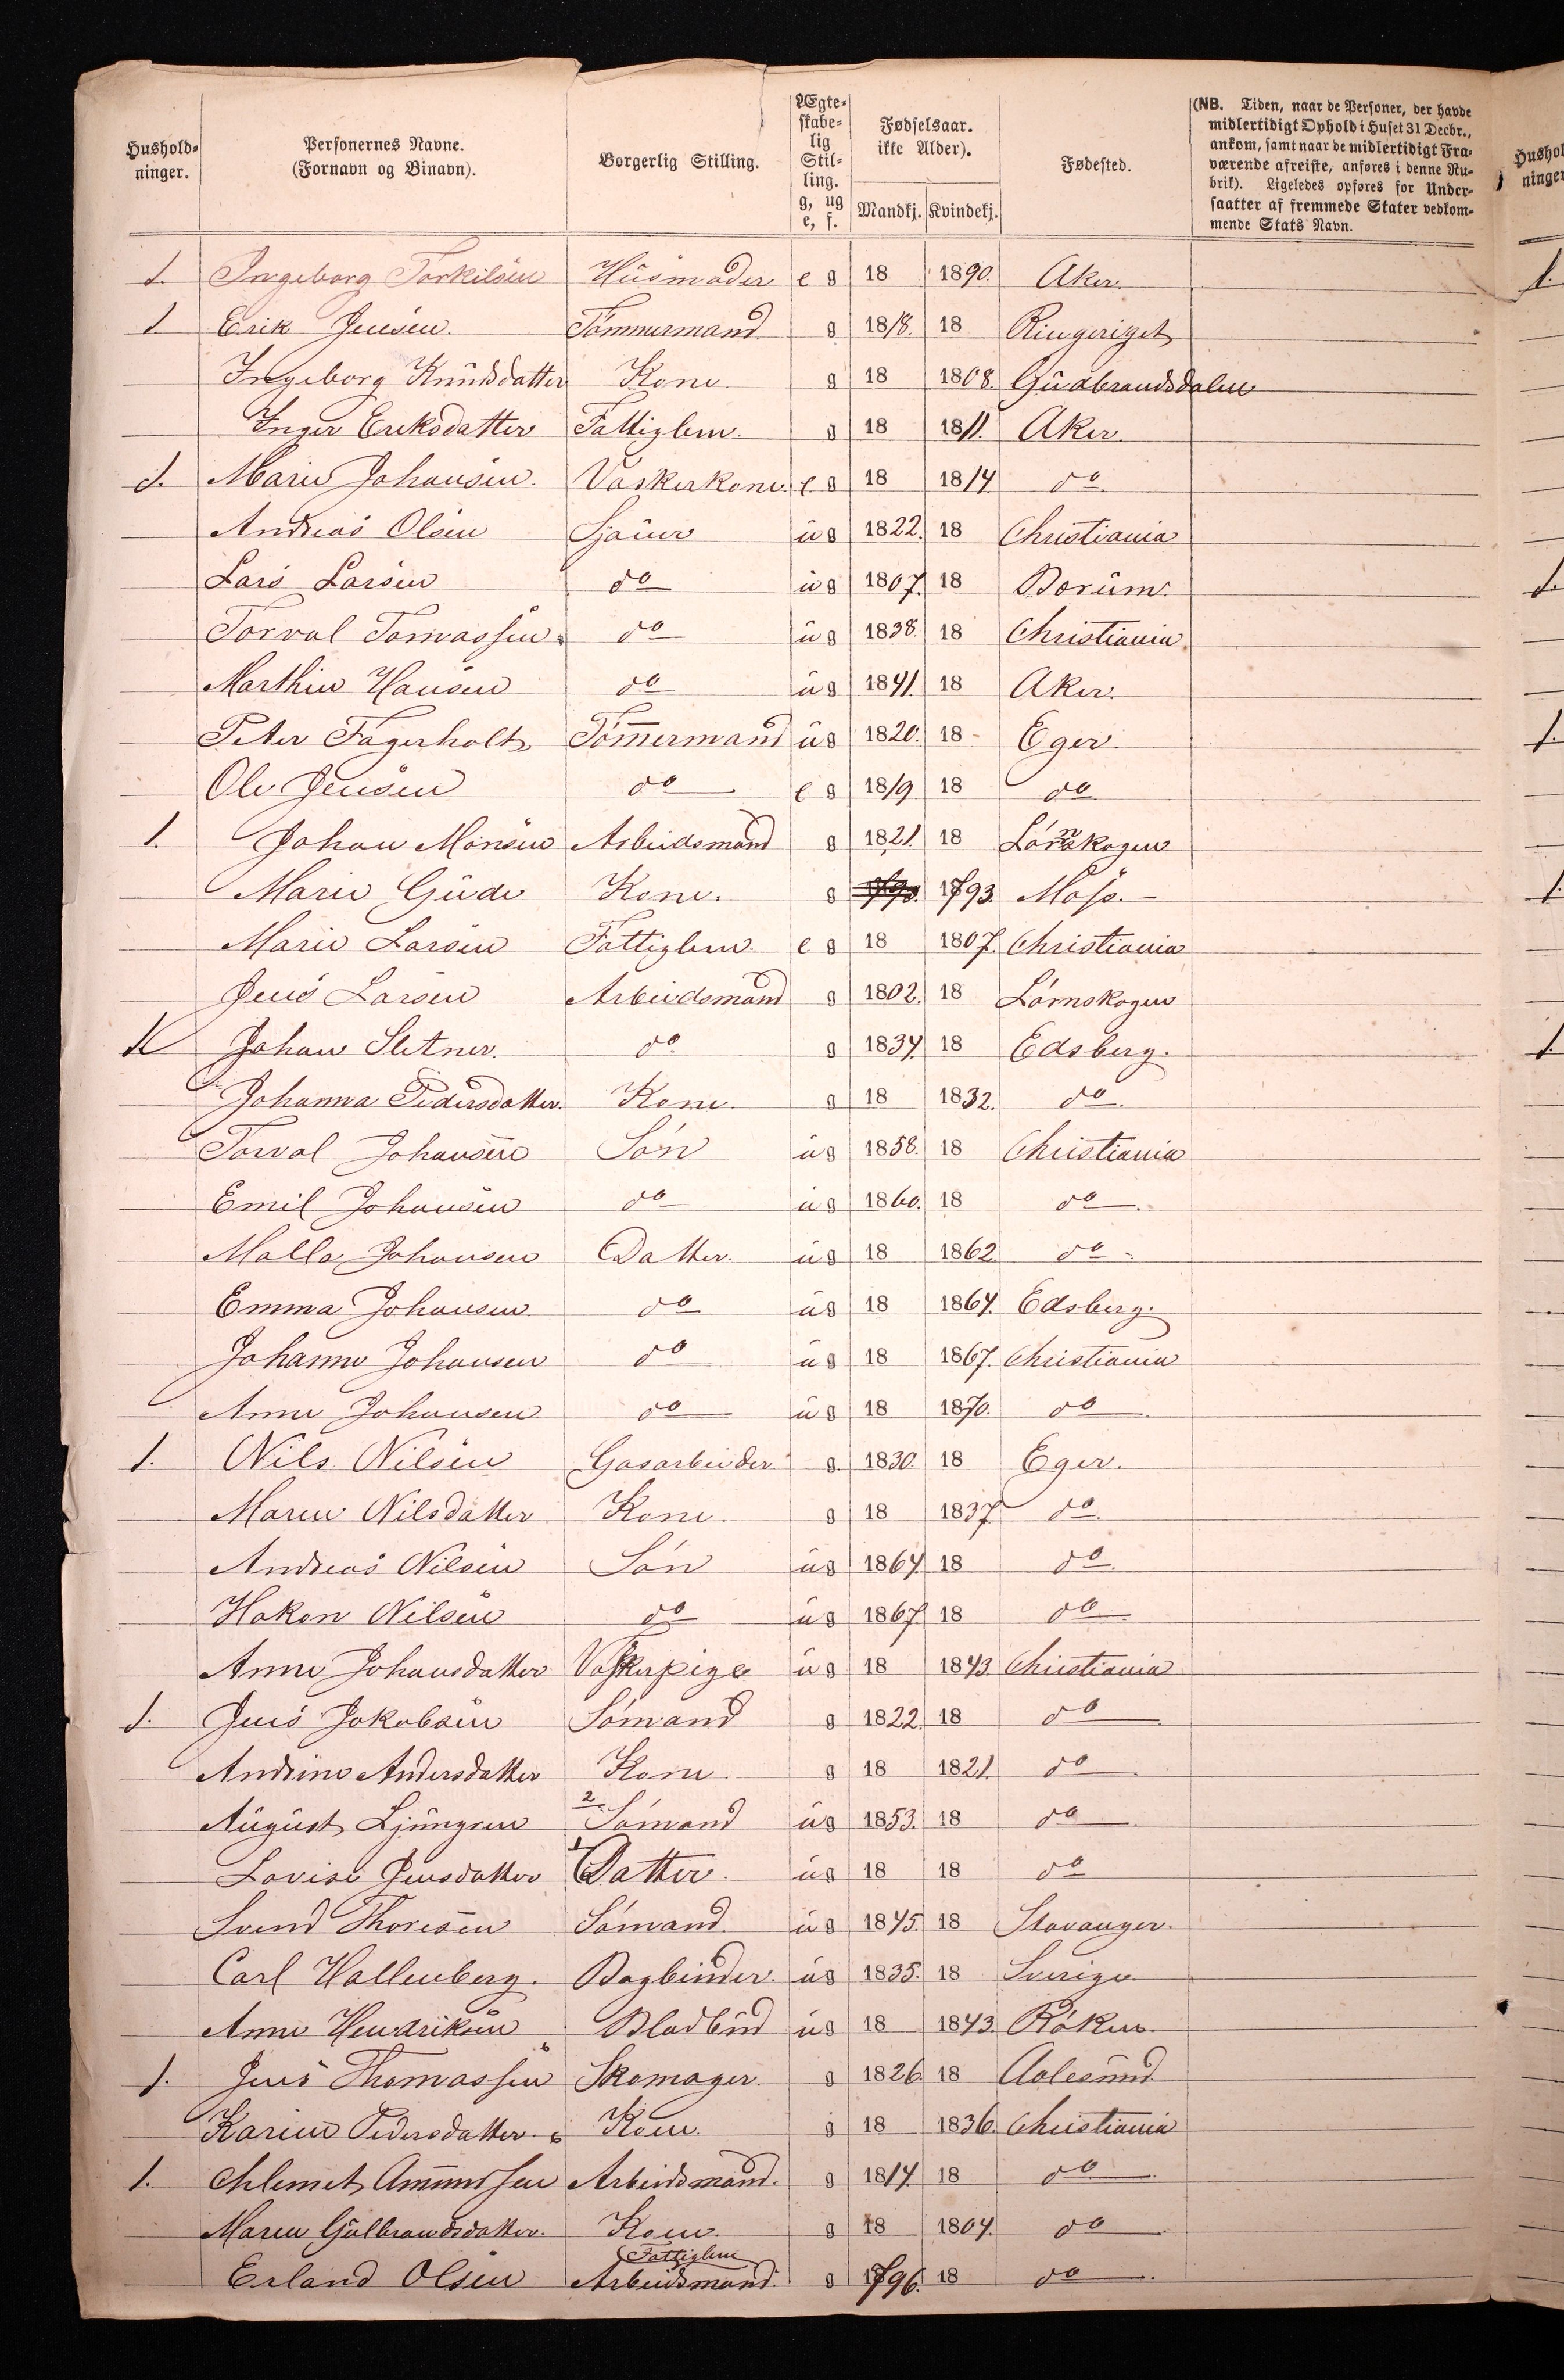 Hushold-
ninger.
Personernes Navne.
(Fornavn og Binavn).
Borgerlig Stilling.
Ægte-
skabe-
lig
Stil-
ling.
g, ug
e, f.
Fødselsaar.
ikke Alder).
Mandkj. Kvindekj.
Fødested.
(NB. Tiden, naar de Personer, der havde
midlertidigt Ophold i Huset 31 Decbr.,
ankom, samt naar de midlertidigt Fra-
værende afreiste, anføres i denne Ru-
brik). Ligeledes opføres for Under-
saatter af fremmede Stater vedkom-
mende Stats Navn.
1. Ingeborg Torkilsen Husmoder e g 18 1890. Aker.
1 Erik Jensen. Tömmermand g 1818. 18 Ringeriget
Ingeborg Knudsdatter Kone g 18 1808. Gudbrandsdalen
Inger Eriksdatter Fattiglem. g 18 1811. Aker.
1. Marie Johansen. Vaskerkone. e g 18 1814 do
Andreas Olsen Sjauer ug 1822. 18 Christiania
Lars Larsen do ug 1807. 18 Bærum.
Torval Tomassen do ug 1838. 18 Christiania
Marthin Hansen do ug 1841. 18 Aker.
Peter Fagerholt Tömmermand ug 1820. 18 Eger.
Ole Jensen do e g 1819 18 do
1. Johan Monsen Arbeidsmand g 1821. 18 Lörnskogen
Marie Gude Kone. g 1793. Moss.
Marie Larsen Fattiglem. e g 18 1807. Christiania
Jens Larsen Arbeidsmand g 1802. 18 Lörnskogen
1 Johan Sletner. do g 1834. 18 Edsberg.
Johanna Pedersdatter. Kone. g 18 1832. do
Torval Johansen Sön ug 1858. 18 Christiania
Emil Johansen do ug 1860. 18 do
Malla Johansen Datter. ug 18 1862 do
Emma Johansen do ug 18 1864. Edsberg.
Johanne Johansen do ug 18 1867. Christiania
Anne Johansen do ug 18 1870. do
1. Nils Nilsen Gasarbeider g. 1830. 18 Eger.
Maren Nilsdatter Kone. g 18 1837 do
Andreas Nilsen Sön ug 1864 18 do
Hakon Nilsen do ug 1867 18 do
Anne Johansdatter Vaskerpige ug 18 1843 Christiania
1. Jens Jakobsen Sömand g 1822. 18 do
Andrine Andersdatter Kone. g 18 1821. do
August Ljungren 2 Sömand ug 1853. 18 do
Lovise Jensdatter 1 Datter. ug 18 18 do
Svend Thoresen Sömand. ug 1845. 18 Stavanger.
Carl Hallenberg. Bogbinder. ug 1835. 18 Sverige
Anne Hendriksen Bladbud ug 18 1843. Röken
1. Jens Thomassen Skomager. g 1826 18 Aalesund
Karine Pedersdatter. Kone. g 18 1836. Christiania
1. Klemet Amundsen Arbeidsmand. g 1814. 18 do
Maren Gulbrandsdatter. Kone. g 18 1804. do
Fattiglem
Erland Olsen Arbeidsmand. g 1796. 18 do